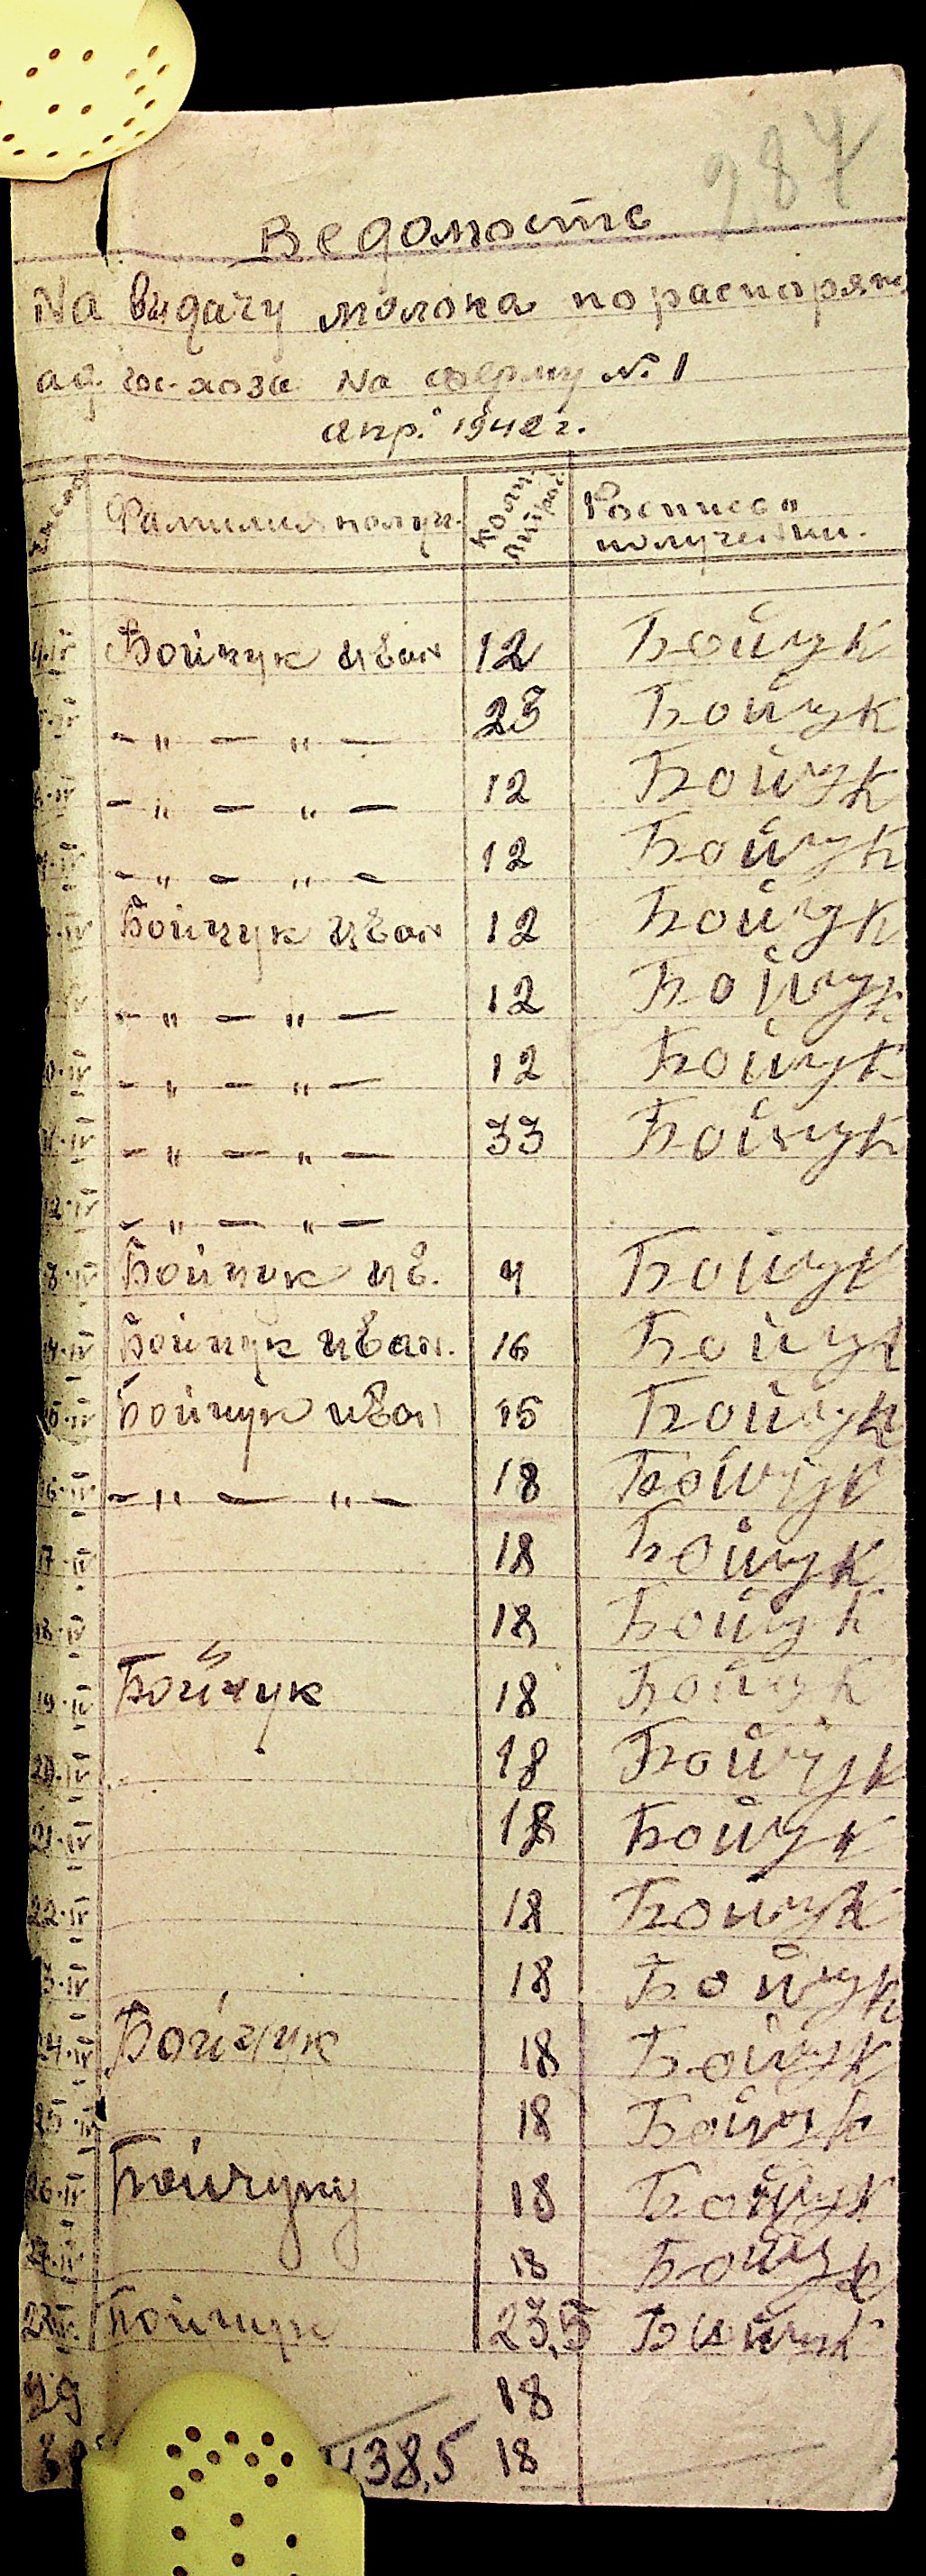 287
Ведомость
На выдачу молока по распоряж
ад. гос-хоза На ферму №1
апр. 1942 г.
Число Фамилия получ. Колич. литров Роспись в получении.
4.IV Бойчук Иван 12 Бойчук
5.IV - " - " - 23 Бойчук
6.IV - " - " - 12 Бойчук
7.IV - " - " - 12 Бойчук
Бойчук Иван 12 Бойчук
- " - " - 12 Бойчук
10.IV - " - " - 12 Бойчук
11.IV - " - " - 33 Бойчук
12.IV - " - " -
13.IV Бойчук Ив. 4 Бойчук
14.IV Бойчук Иван. 16 Бойчук
15.IV Бойчук Иван 15 Бойчук
16.IV - " - " - 18 Бойчук
17.IV 18 Бойчук
18.IV 18 Бойчук
19.IV Бойчук 18 Бойчук
20.IV 18 Бойчук
21.IV 18 Бойчук
22.IV 18 Бойчук
23.IV 18 Бойчук
24.IV Бойчук 18 Бойчук
25.IV 18 Бойчук
26.IV Бойчуку 18 Бойчук
27.IV 18 Бойчук
28.IV Бойчук 23,5 Бойчук
29 18
30 438,5 18